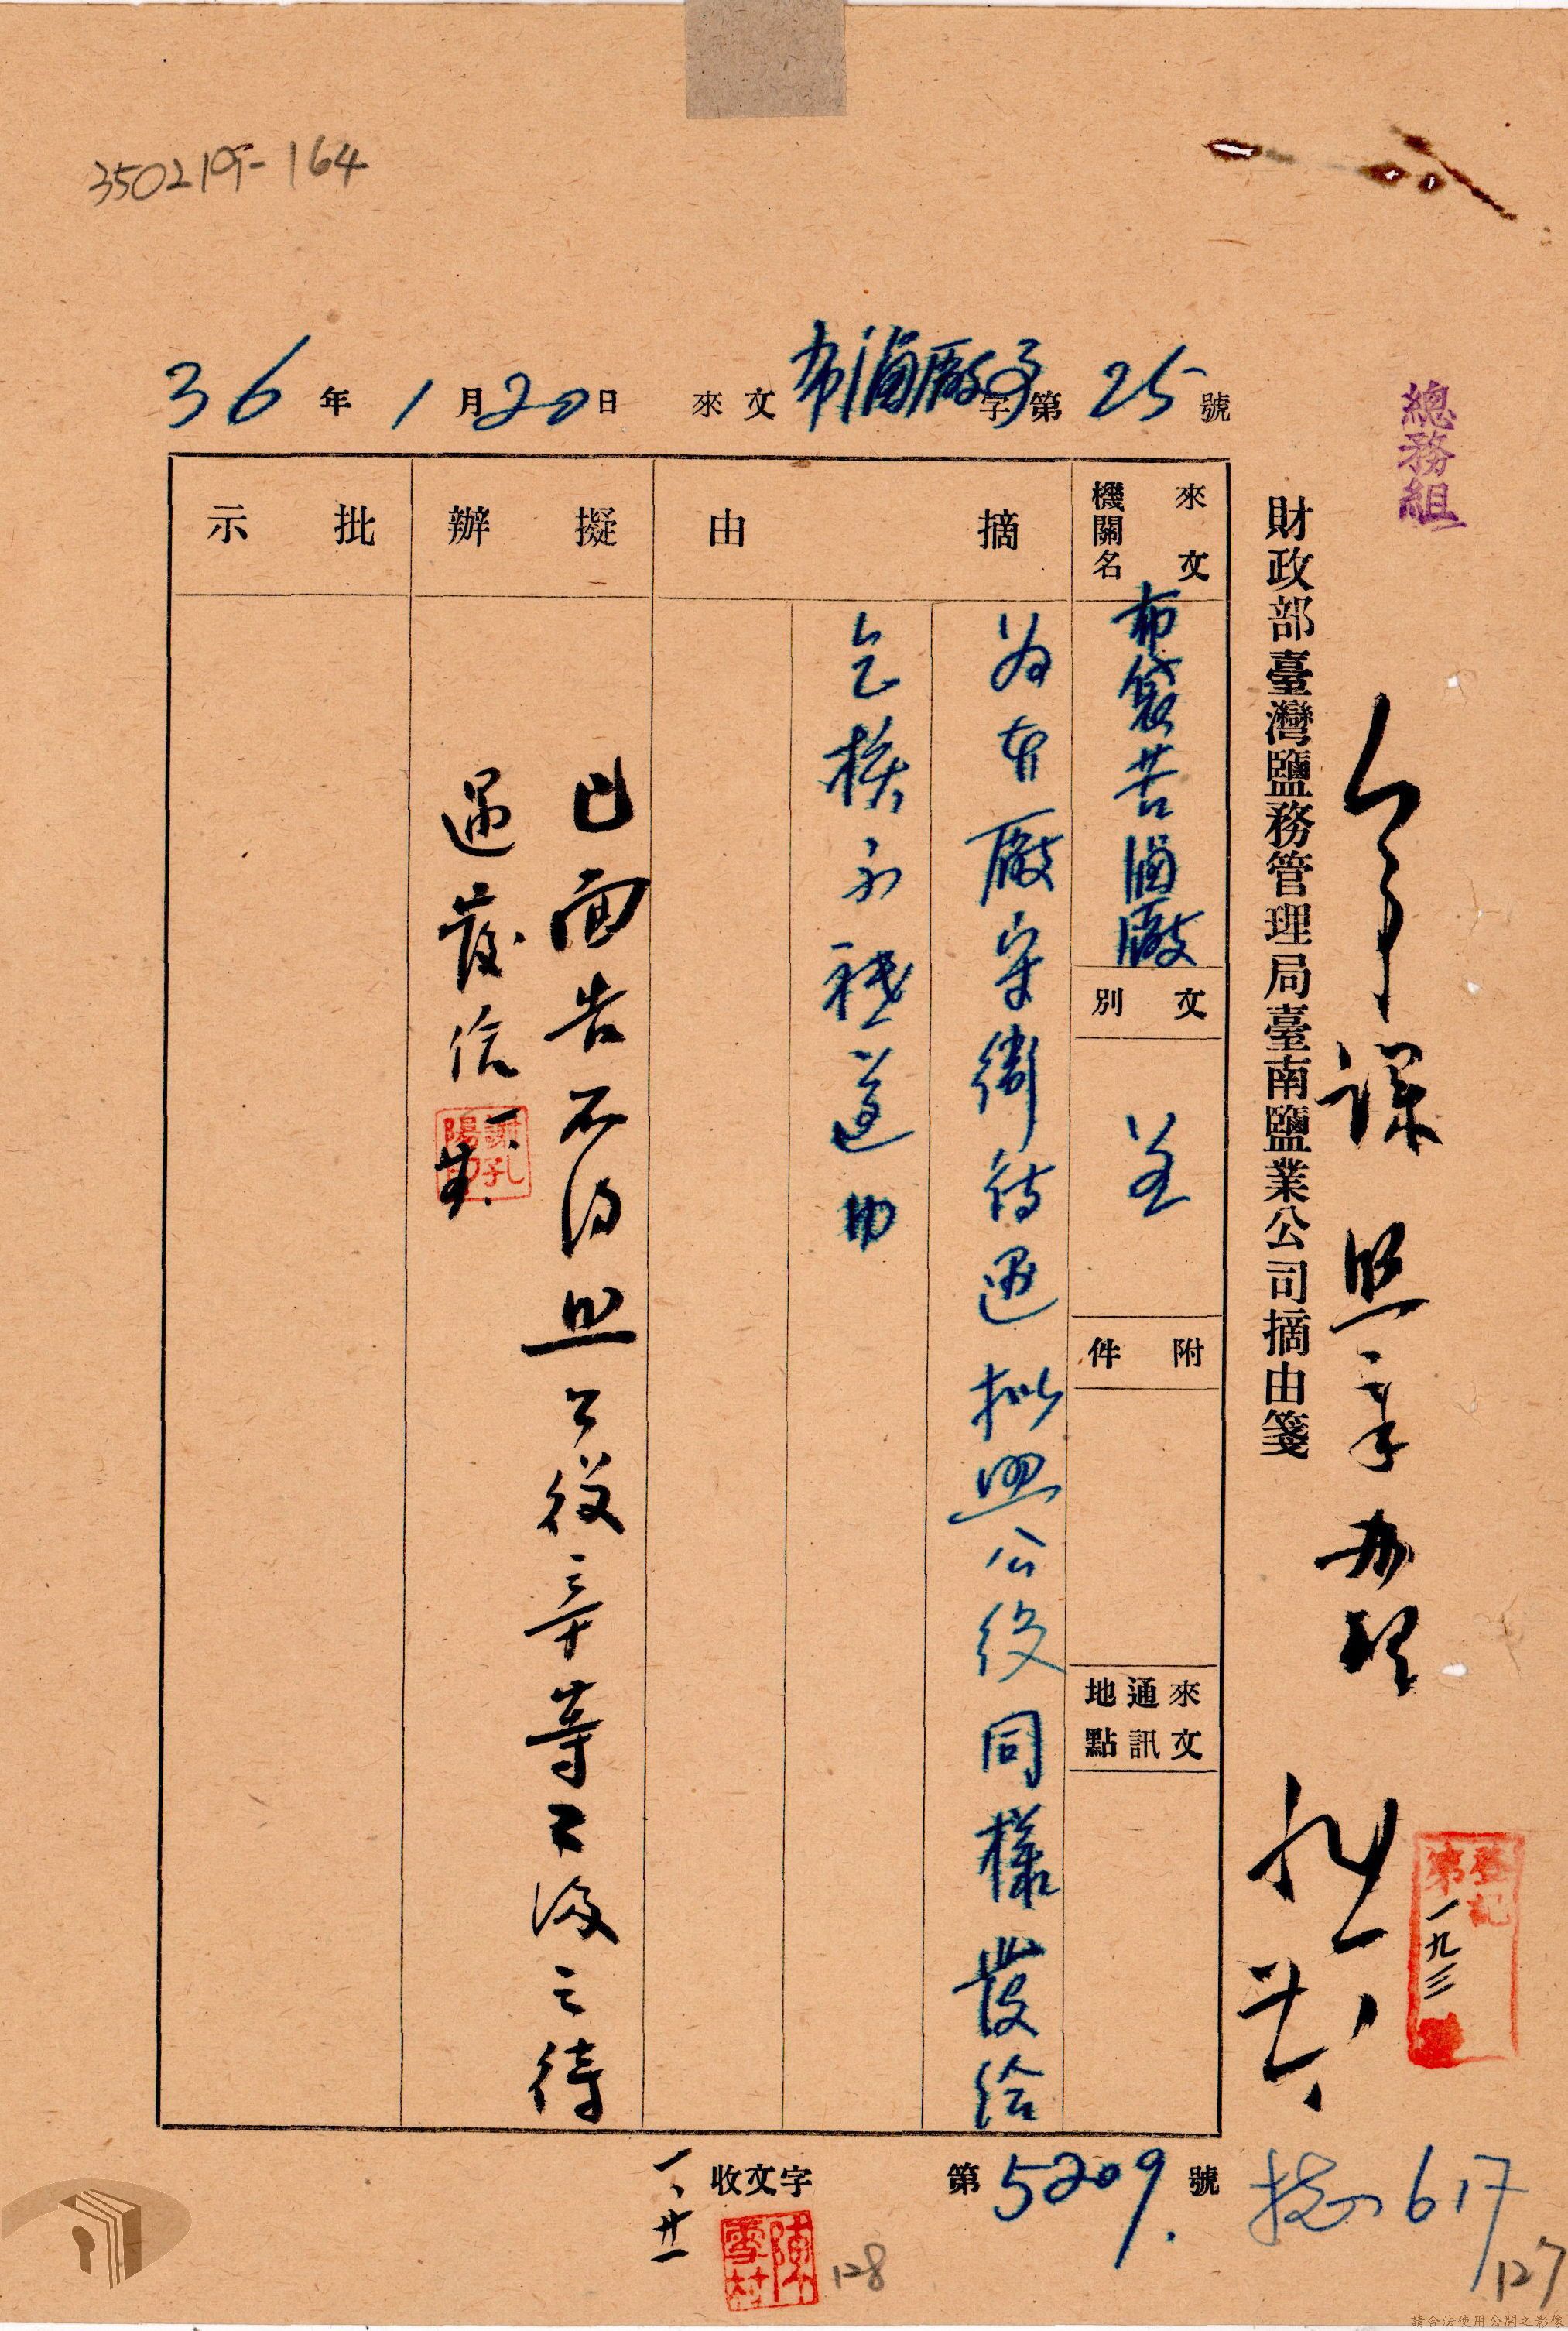 350219-164
總務組
人事課 照章辦理
登記
第一九三
財政部臺灣鹽務管理局臺南鹽業公司摘由箋
36年1月20日 來文 布滷廠字第25號
來文機關名
布袋苦滷廠
文別
呈
附件
來文通訊地點
摘由
為本廠守衛待遇擬照公役同樣發給
乞核示祗遵由
擬辦
已面告不得照公役辛等工役之待
遇發給
謝孔陽印
批示
一、廿一
收文字 第5209號
陳雪村
617
128
127
請合法使用公開之影像